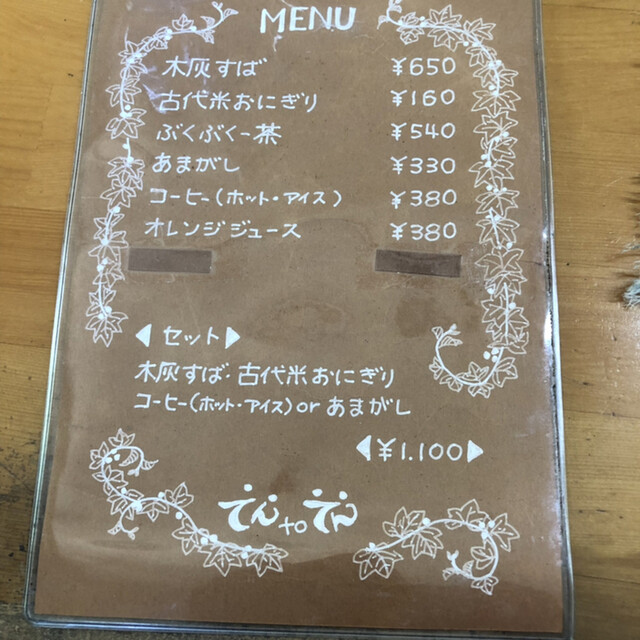 MENU
木灰すば ¥650
古代米おにぎり ¥160
ぶくぶくー茶 ¥540
あまがし ¥330
コーヒー(ホット・アイス) ¥380
オレンジジュース ¥380
◀ セット ▶
木灰すば・古代米おにぎり
コーヒー(ホット・アイス)or あまがし
◀¥1.100▶
てん to てん